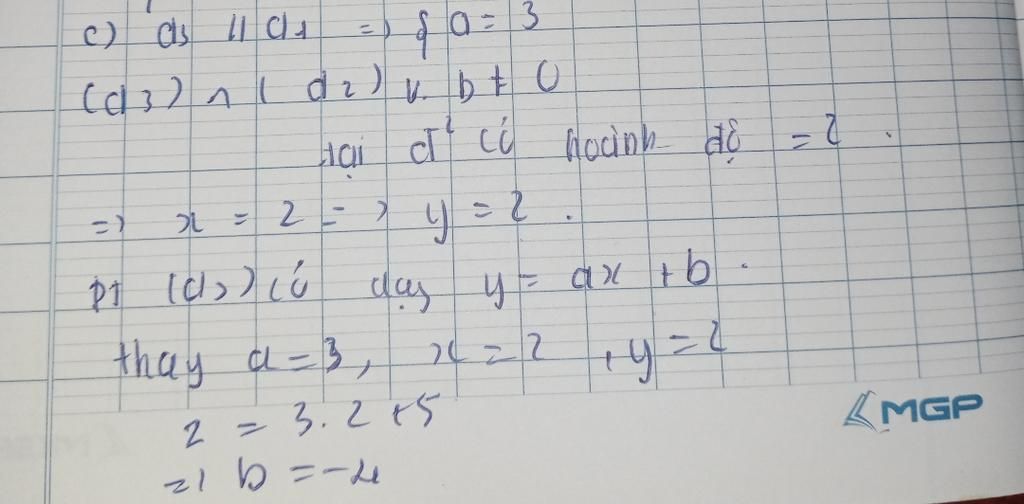 c) d3 // d1 => { a = 3
(d3) ∩ ( d2) b ≠ 0
tại đ² có hoành độ = 2 .
=> x = 2 => y = 2 .
pt (d3) có dạng y = ax + b .
thay a = 3, x = 2 , y = 2
2 = 3. 2 + 5
=> b = -4
MGP